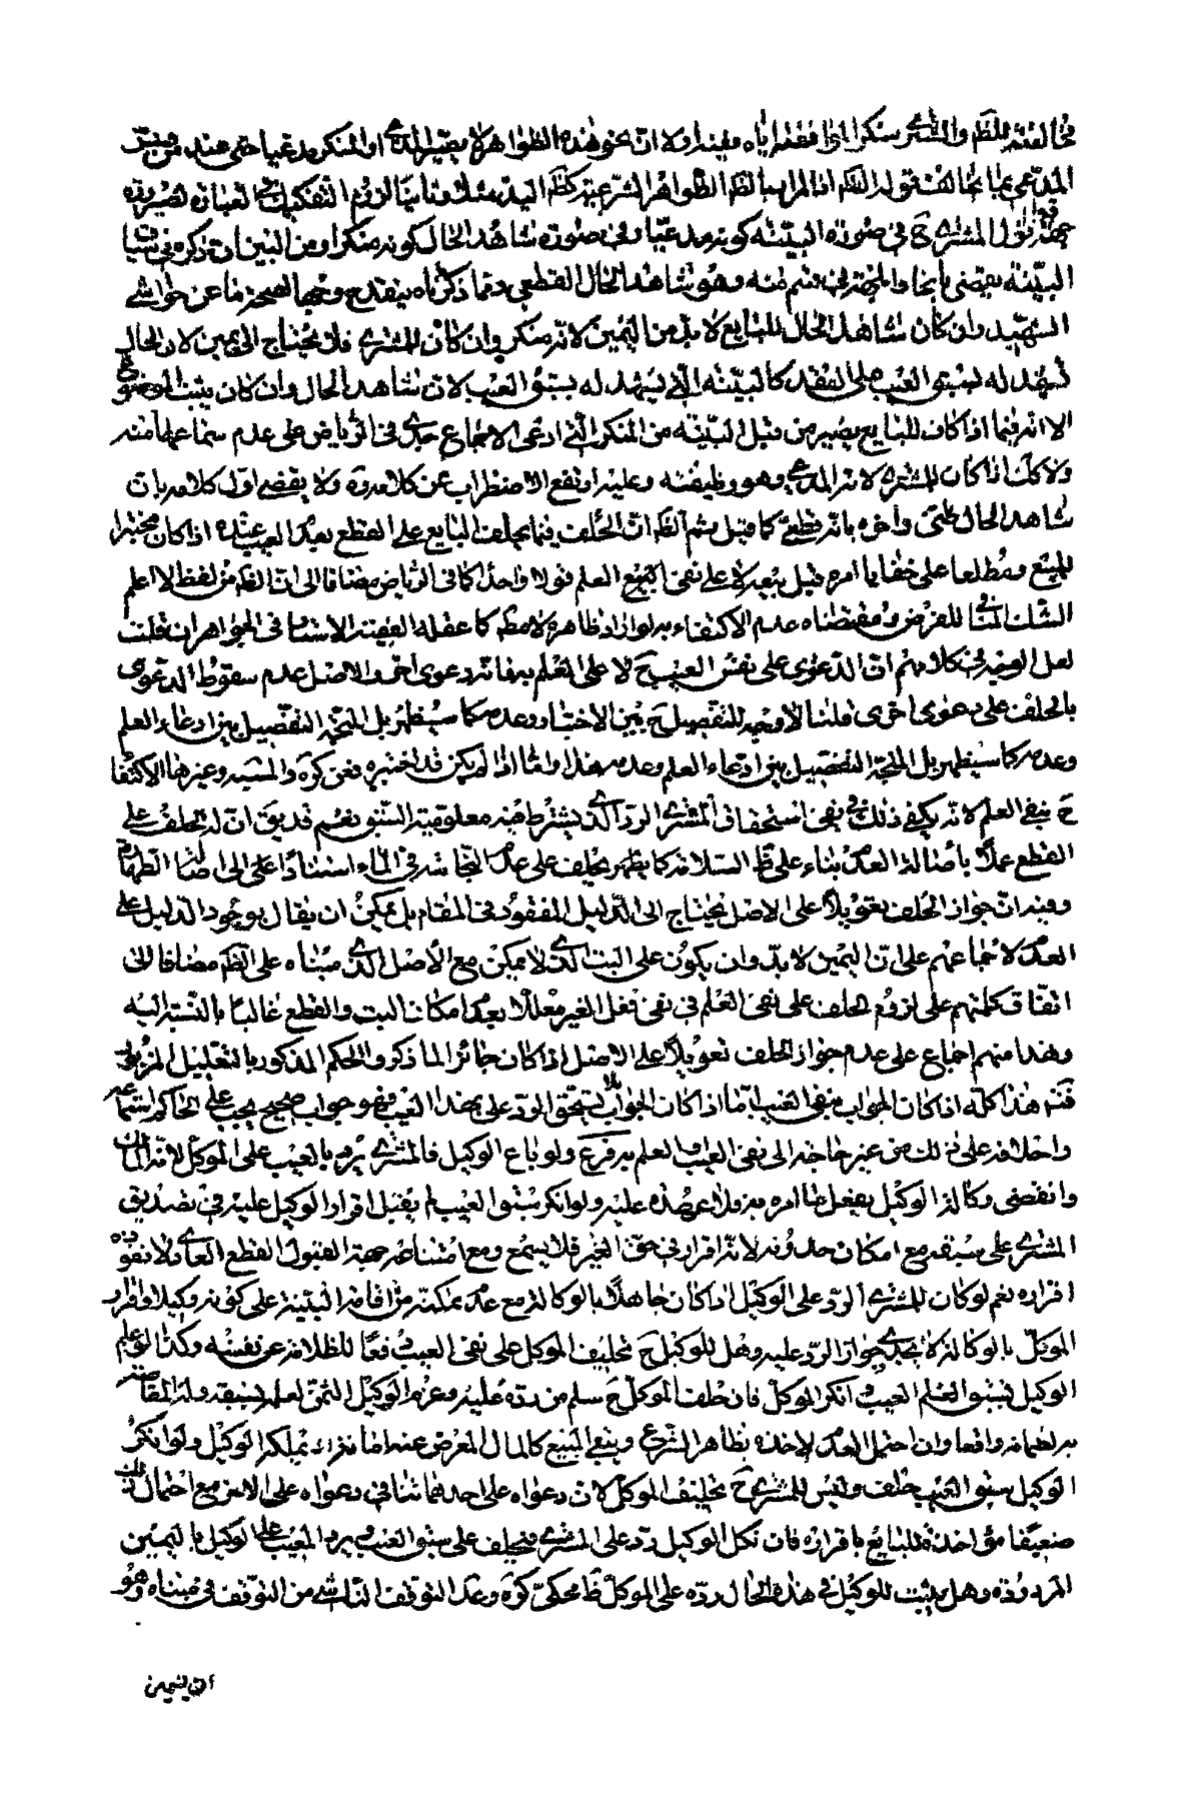 مخالفته للظ والمشترى منكرا الى فقد اياه وفيه اولا ان نحو هذه الظواهر لا يصير المدعى او المنكر مدعيا حتى عند من فسر
المدعى بما يخالف قوله الظ اذ المراد بالظ الظواهر الشرعية كظ اليد مثلا وثانيا لزوم التفكيك فى العبارة لصيرورة
قول المشترى ح فى صورة البينة كونه مدعيا وفى صورة شاهد الحال كونه منكرا ومن البين ان ذكره فى سياق
البينة يقتضى باتحاد الجهة فيهم منه وهو شاهد الحال القطعى ومما ذكرناه ينقدح وجه الصحة ما عن حواشى
الشهيد وان كان شاهد الحال للبايع لا بد من اليمين لانه منكر وان كان للمشترى فلا يحتاج الى يمين لان الحال
تشهد له بسبق العيب على العقد كالبينة التى تشهد له بسبق العيب لان شاهد الحال وان كان يثبت الموضوع
الا انه فيما اذا كان للبايع يصير من قبيل البينة من المنكر التى ادعى الاجماع جدى فى الرياض على عدم سماعها منه
ولا كك اذا كان للمشترى لانه المدعى وهو وظيفته وعليه ارتفع الاضطراب عن كلامه قده ولا يقضى اول كلامه بان
شاهد الحال ظنى واخره بانه قطعى كما قيل ثم الظ ان الحلف فيما يحلف البايع على القطع بعدم العيب عنده اذا كان مختبرا
للمبيع ومطلعا على خفايا امره قبل بيعه لا على نفى العلم قولا واحدا كما فى الرياض مضافا الى ان الظ من لفظ لا اعلم
الشك المنافى للفرض ومقتضاه عدم الاكتفاء به لو اراد ظاهره لا مط كما عقله الفقيه الاستاد فى الجواهر ان قلت
لعل الوجه فى كلامهم ان الدعوى على نفس العيب ح لا على العلم به فانه دعوى اخرى والاصل عدم سقوط الدعوى
بالحلف على دعوى اخرى قلنا لا وجه للتفصيل ح بين الاختبار وعدمه كما سيظهر بل المتجه التفصيل بين ادعاء العلم
وعدمه كما سيظهر بل المتجه التفصيل بين ادعاء العلم وعدمه هذا واما اذا لم يكن قد اختبره فعن كره والمسيه وغيرها الاكتفاء
ح بنفى العلم لانه يكفى ذلك فى نفى استحقاق المشترى الرد الذى يشترط فيه معلومية السبق نعم قد يق ان له الحلف على
القطع عملا باصالة العدم بناء على ظ السلامة كما يظهر يحلف على عدم النجاسة فى الماء استنادا على الى اصالة الطهارة
وفيه ان جواز الحلف تعويلا على الاصل يحتاج الى الدليل المفقود فى المقام بل يمكن ان يقال بوجود الدليل على
العدم لاجماعهم على ان اليمين لا بد وان يكون على البت الذى لا يمكن مع الاصل الذى مبناه على الظ مضافا الى
اتفاق كلمتهم على لزوم الحلف على نفى العلم فى نفى فعل الغير معللا بعدم امكان البت والقطع غالبا بالنسبة اليه
وهذا منهم اجماع على عدم جواز الحلف تعويلا على الاصل اذا كان جائزا لما ذكروا الحكم المذكور بالتعليل المزبور
فتدبر هذا كله اذا كان الجواب بنفى العيب اما اذا كان الجواب لا يستحق الرد على بهذا العيب فهو جواب صحيح يجب على الحاكم استماعه
واحلافه على ذلك من غير حاجة الى نفى العيب والعلم به فرع ولو باع الوكيل فالمشترى يرد بالعيب على الموكل لانه المالك
وانقضى وكالة الوكيل بفعل ما امر به ولا عهدة عليه ولو انكر سبق العيب لم يقبل اقرار الوكيل عليه فى تصديق
المشترى على سبقه مع امكان حدوثه لانه اقرار فى حق الغير فلا يسمع ومع امتناعه جهة القبول القطع العادى لا نفوذ
اقراره نعم لو كان للمشترى الرد على الوكيل اذا كان جاهلا بالوكالة مع عدم تمكنه من اقامة البينة على كونه وكيلا واقرار
الموكل بالوكالة لا يجدى جواز الرد عليه وهل للوكيل ح تحليف الموكل على نفى العيب دفعا للظلامة عن نفسه وكذا لو علم
الوكيل بسبق العلم العيب و انكر الموكل فان حلف الموكل ح سلم من رده عليه وغرم الوكيل الثمن لعلمه بسبقه وله المقاصة
به لضمانه واقعا وان احتمل العدم لاخذه بظاهر الشرع وبقى المبيع كالمال المعرض عنه اما منزلة تملكه الوكيل ولو انكر
الوكيل سبق العيب حلف وليس للمشترى ح تحليف الموكل لان دعواه على احدهما تنافى دعواه على الاخر مع احتمال ذلك
ضعيفا مؤاخذة للبايع باقراره فان نكل الوكيل رد على المشترى فيحلف على سبق العيب ويرد المعيب على الوكيل باليمين
المردودة وهل يثبت للوكيل فى هذه الحال رده على الموكل ظ محكى كره وعد التوقف الناشى من التوقف فى مبناه وهو
ان اليمين